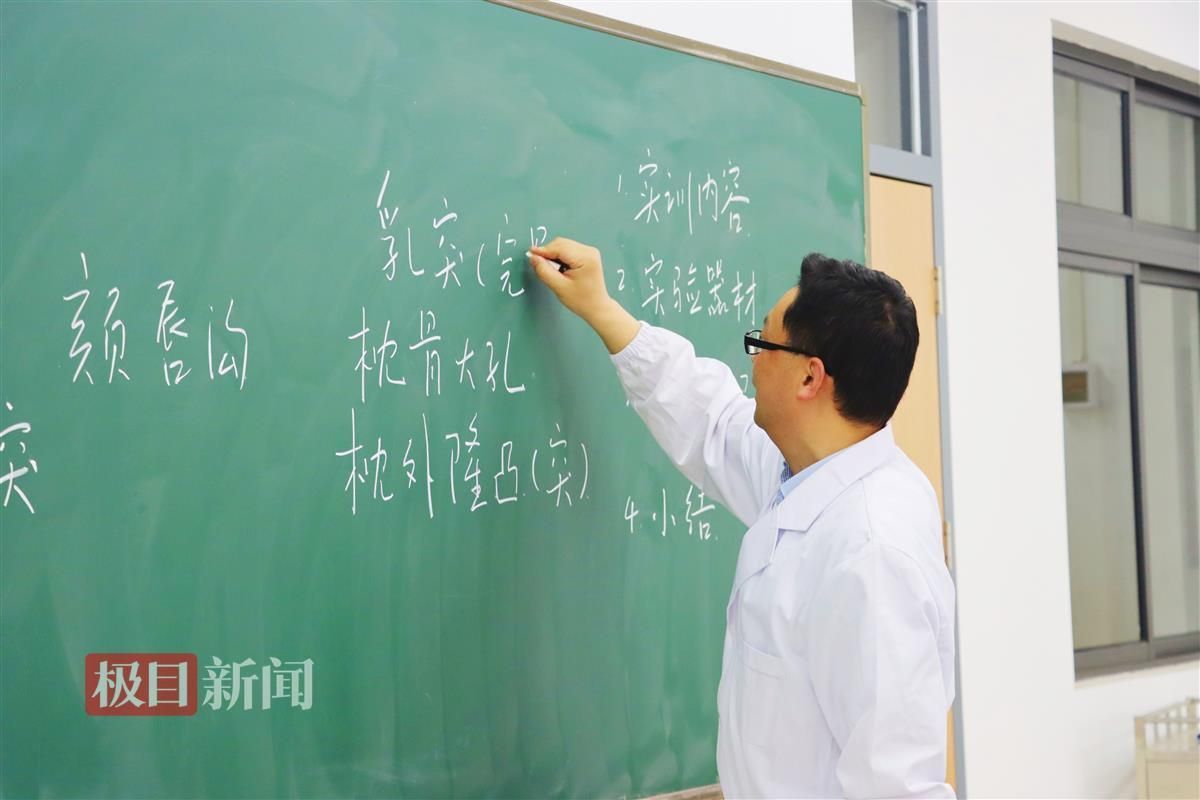 颏唇沟
突
乳突(完
枕骨大孔.
枕外隆凸(突).
1.实训内容.
2.实验器材
4.小结.
极目新闻